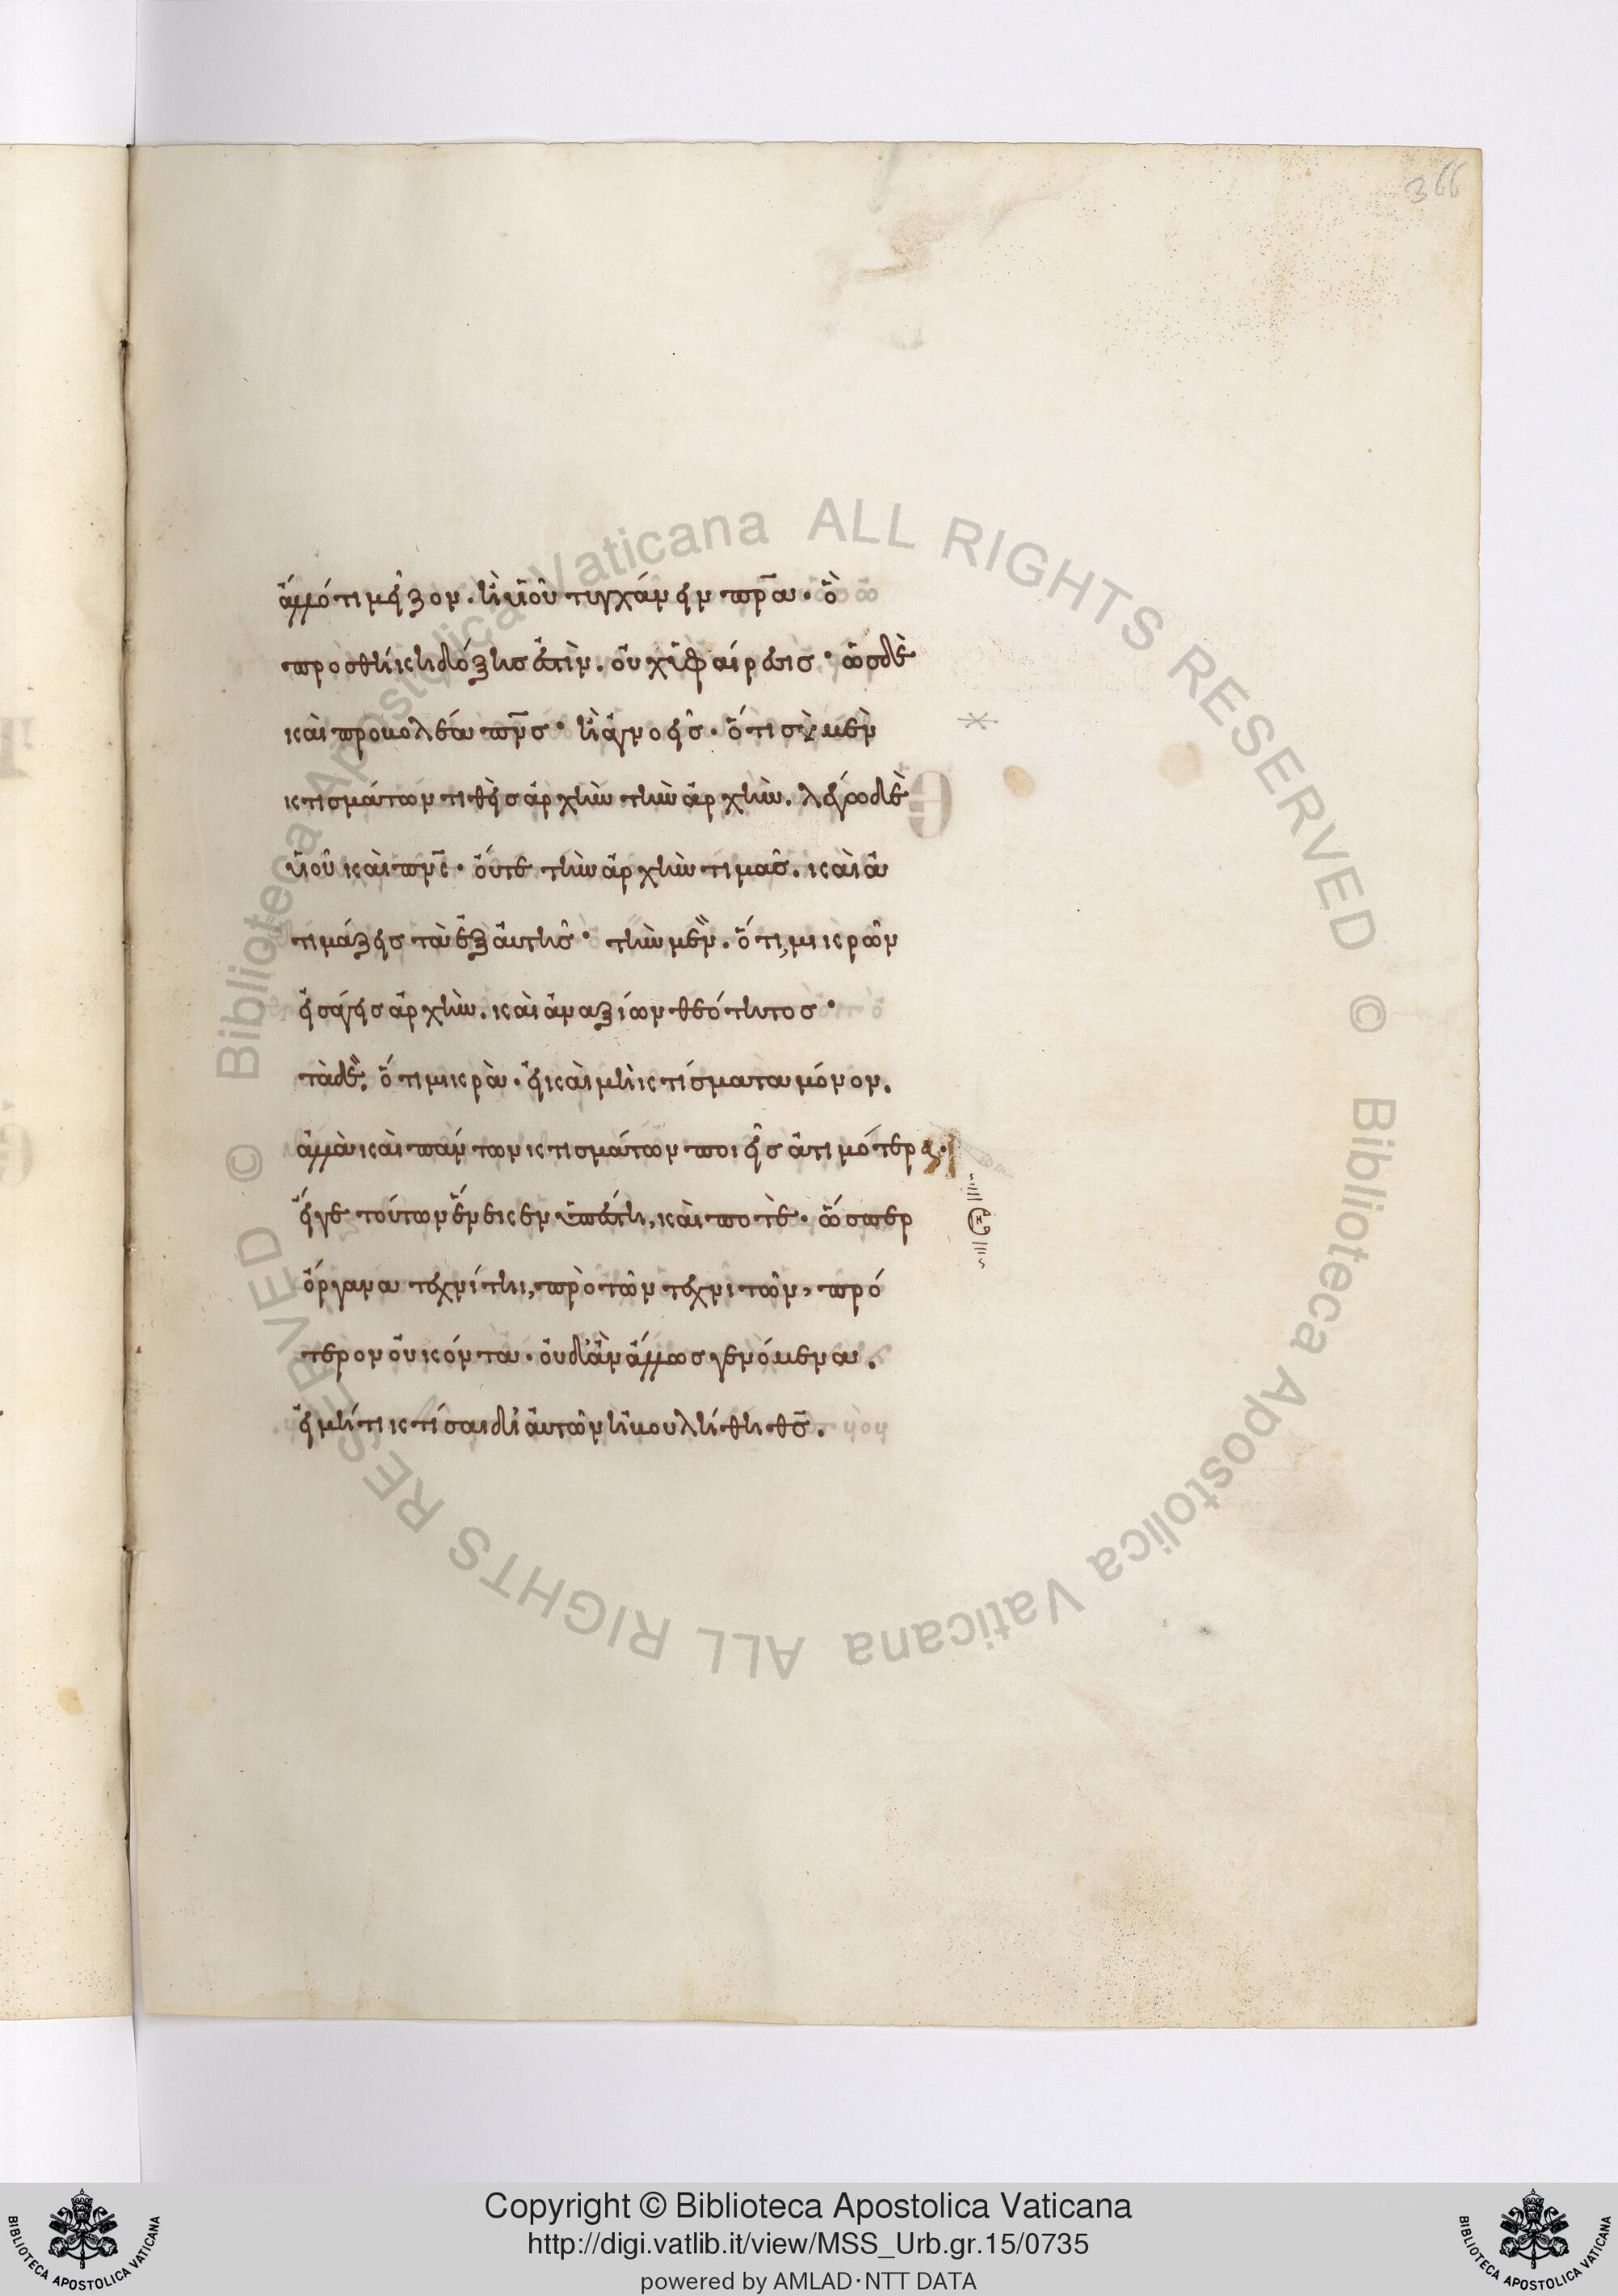 366
ἄλλό τι μεῖζον. ἢ υἱοῦ τυγχάνειν π̅ρ̅α̅· ὃ
προσθήκη δόξης ἐστὶν. οὐχ ὑφαίρεσις· ὡς δὲ
καὶ προβολέα π̅ν̅ς̅· ἢ ἀγνοεῖς. ὅτι σὺ μὲν
κτισμάτων τιθεὶς ἀρχὴν τὴν ἀρχὴν. λέγω δὲ
υἱοῦ καὶ π̅ν̅ς̅· οὔτε τὴν ἀρχὴν τιμᾶς. καὶ ἀ
τιμάζεις τὰ ἐξ αὐτῆς· τὴν μὲν. ὅτι, μικρῶν
εἰσάγεις ἀρχὴν. καὶ ἀναξίων θεότητος·
τὰ δὲ. ὅτι μικρὰ. εἰ καὶ μὴ κτίσματα μόνον.
ἀλλὰ καὶ πάντων κτισμάτων ποιεῖς ἀτιμότερα.
εἴγε τούτων ἕνεκεν ὑπέστη, καὶ ποτὲ· ὥσπερ
ὄργανα τεχνίτη, πρὸ τῶν τεχνιτῶν, πρό
τερον οὐκ ὄντα· οὐδ' ἂν ἄλλως γενόμενα.
εἰ μή τι κτίσαι δι' αὐτῶν ἠβουλήθη θ̅ς̅.
Copyright © Biblioteca Apostolica Vaticana
http://digi.vatlib.it/view/MSS_Urb.gr.15/0735
powered by AMLAD·NTT DATA
BIBLIOTECA APOSTOLICA VATICANA
BIBLIOTECA APOSTOLICA VATICANA
© Biblioteca Apostolica Vaticana ALL RIGHTS RESERVED
© Biblioteca Apostolica Vaticana ALL RIGHTS RESERVED